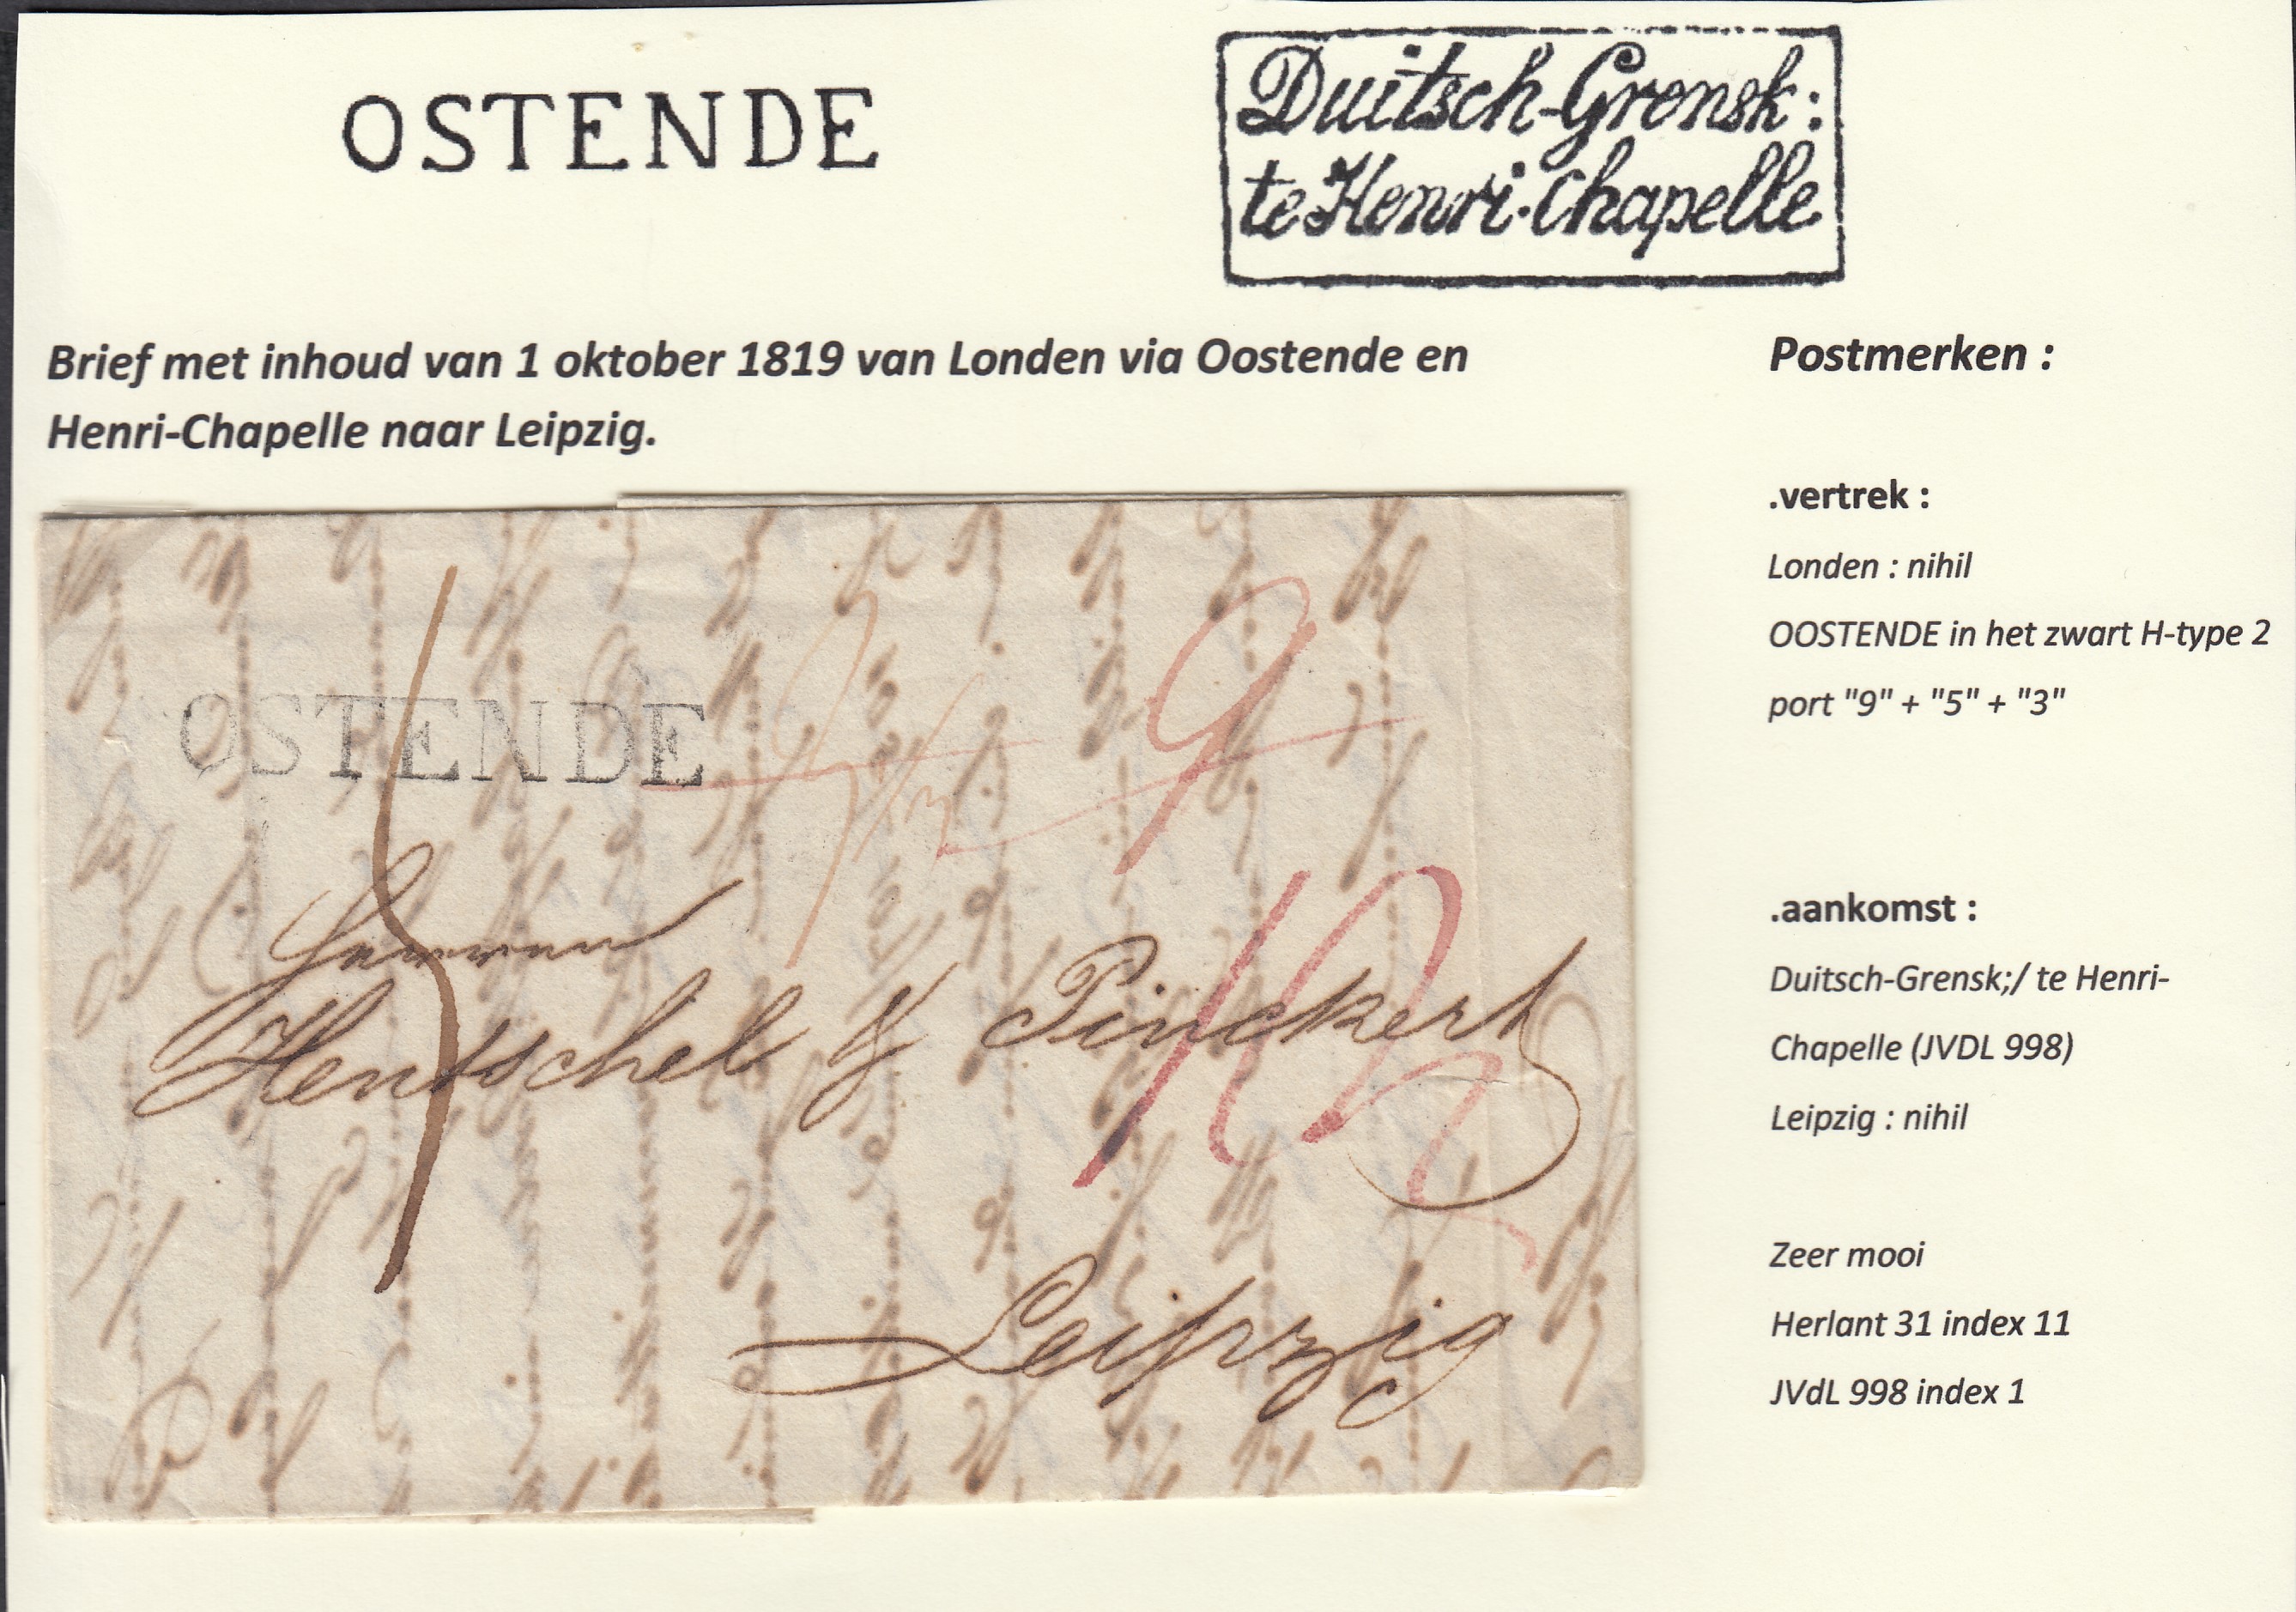 OSTENDE
Duitsch-Grensk:
te Henri-Chapelle
Brief met inhoud van 1 oktober 1819 van Londen via Oostende en
Henri-Chapelle naar Leipzig.
Postmerken :
.vertrek :
Londen : nihil
OOSTENDE in het zwart H-type 2
port "9" + "5" + "3"
.aankomst :
Duitsch-Grensk;/ te Henri-
Chapelle (JVDL 998)
Leipzig : nihil
Zeer mooi
Herlant 31 index 11
JVdL 998 index 1
OSTENDE
9
Herren
Hentschel & Pinckert
Leipzig